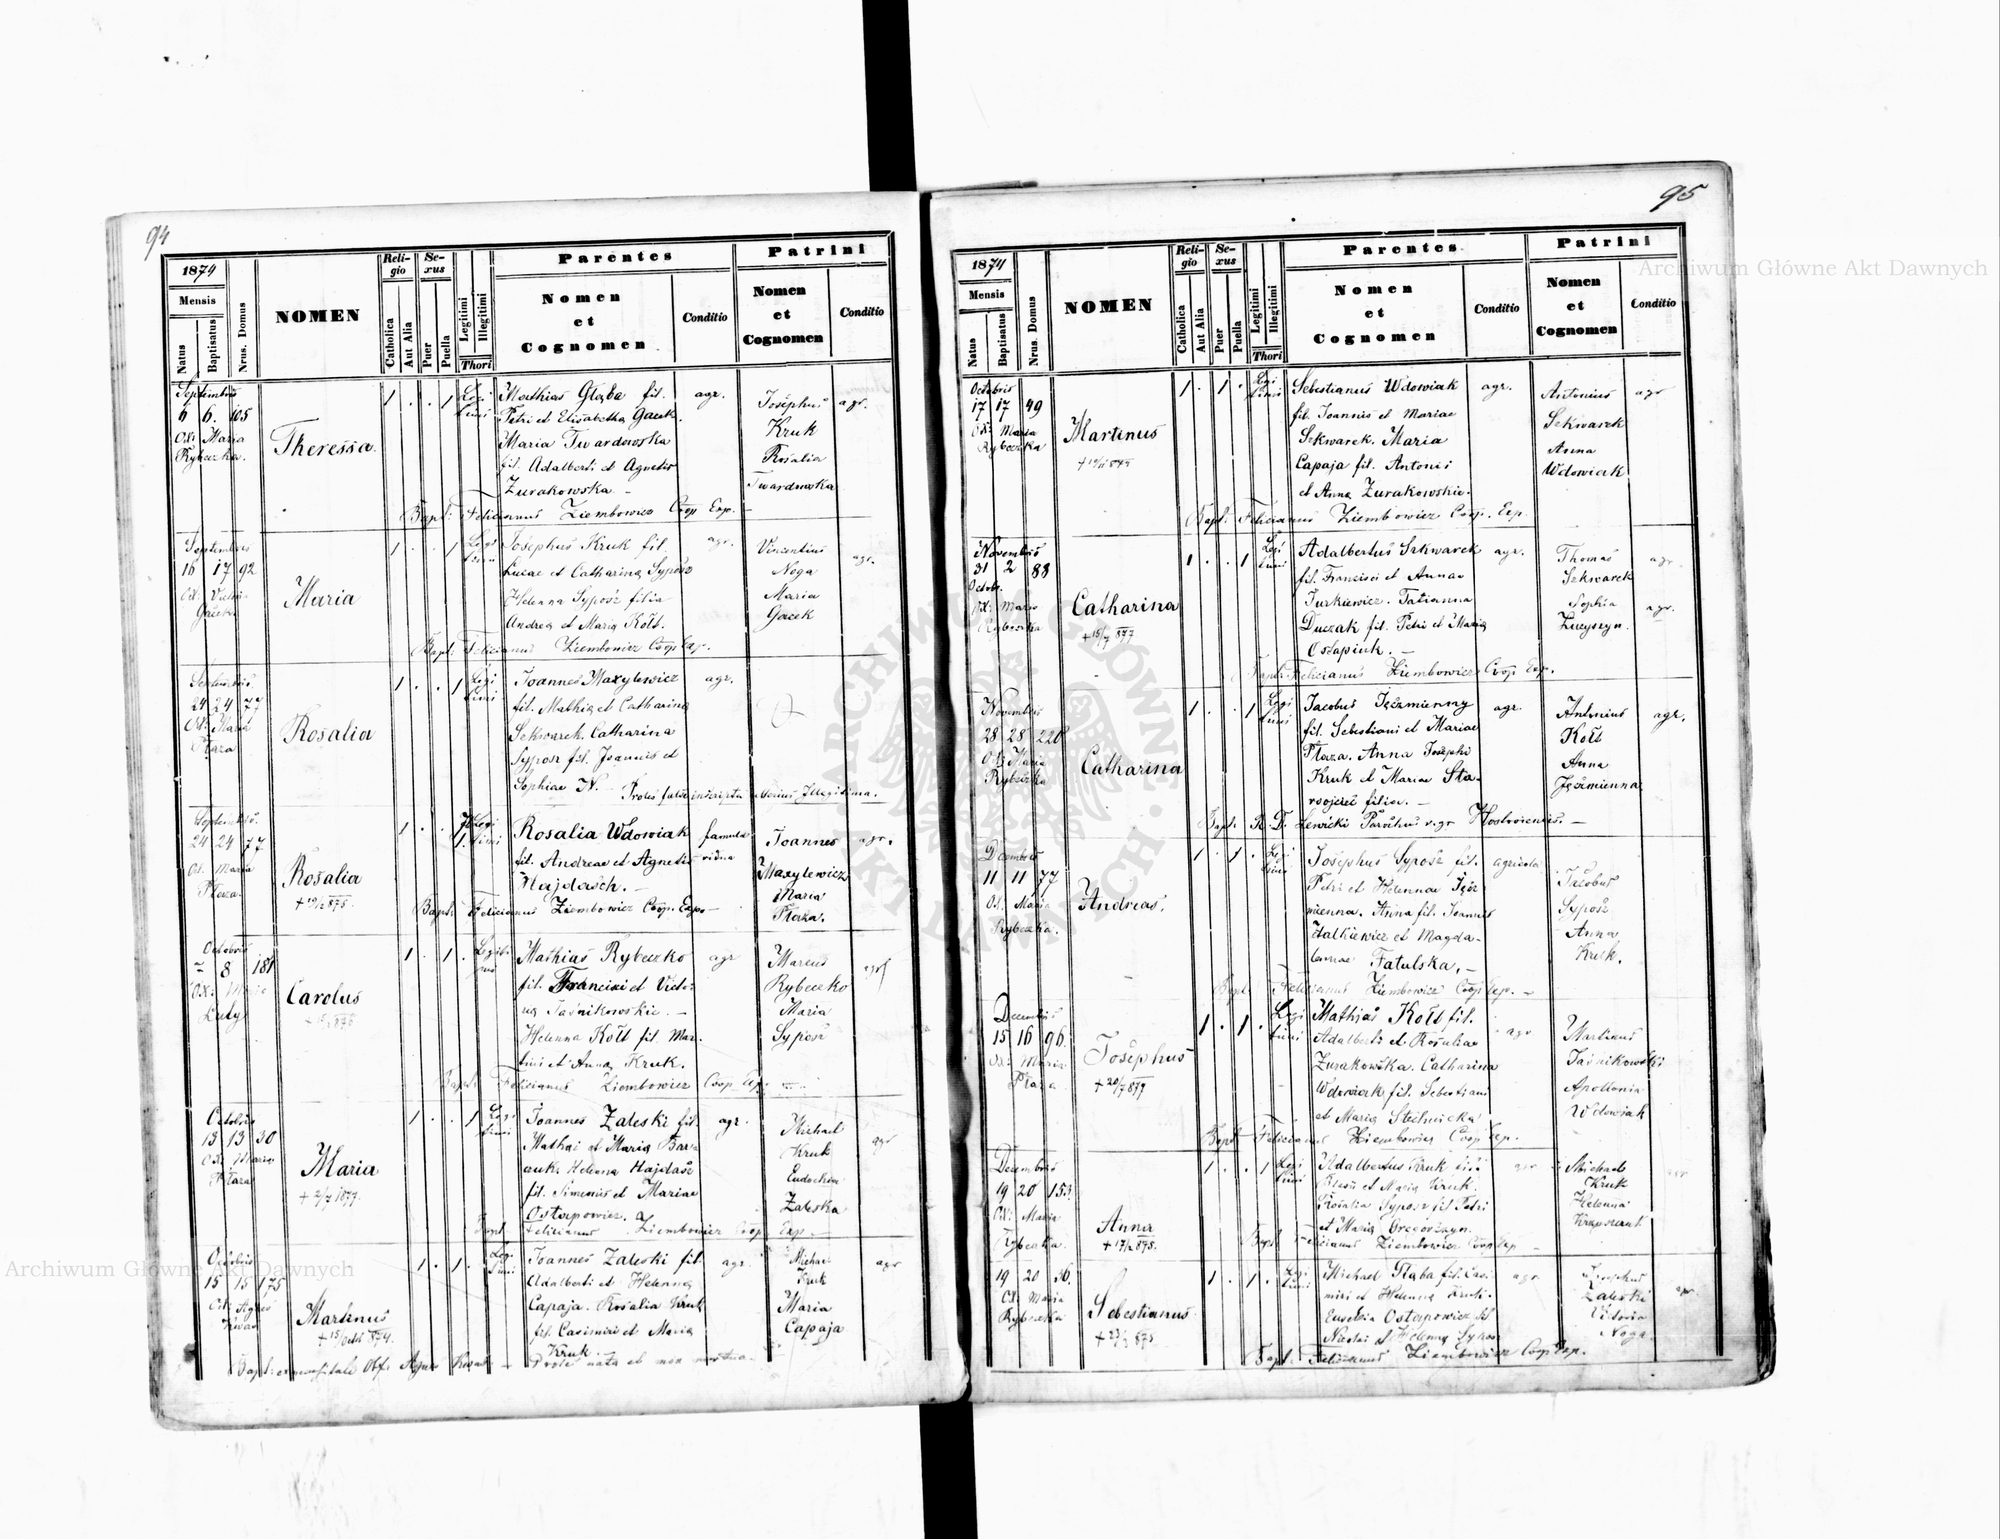 94
1874
Mensis
Natus
Baptisatus
Nrus. Domus
NOMEN
Reli-
gio
Catholica
Aut Alia
Se-
xus
Puer
Puella
Legitimi
Illegitimi
Thori
Parentes
Nomen
et
Cognomen
Conditio
Patrini
Nomen
et
Cognomen
Conditio
Septembris
6 6. 105
Ost: Maria
Rybeczka.
Theressa.
1 . . 1
Legi
timi
Mathias Głąba fil.
Petri et Elisabetha Gacek.
Maria Twardowska
fil. Adalberti et Agnetis
Zurakowska –
agr.
Josephus
Kruk
Rosalia
Twardowska
agr.
Bapt: Felicianus Ziembowicz Coop Exp. –
Septembris
16 17 92
Gacek
Maria
1 . . 1
Legi
timi
Josephus Kruk fil.
Lucae et Catharina Syposz
Helenna Syposz filia
Andrea et Maria Kołt.
agr.
Vincentius
Noga
Maria
Gacek
agr.
Bapt: Felicianus Ziembowicz Coop Exp.
Septembris
24 24 77
Ost: Maria
Płaza
Rosalia
1 . . 1
Legi
timi
Joannes Maxylewicz
fil. Mathia et Catharina
Szkwarek. Catharina
Syposz fil. Joannis et
Sophiae N. – Proles false inscripta ulterius Illegitima.
agr.
Septembris
24 24 77
Ost. Maria
Płaza.
Rosalia
+ 19/12 875.
1 . .
Rosalia Wdowiak
fil. Andreae et Agnetis
Hajdasch. –
famula
vidua
Joannes
Maxylewicz
Maria
Płaza.
agr.
Bapt: Felicianus Ziembowicz Coop. Expo –
Octobris
7 8 181
Ost: Maria
Luty
Carolus
1 . 1 .
Mathias Rybeczko
fil. Francisci et Victo-
ria Jaśnikowskie. –
Helenna Kołt fil. Mar-
tini et Anna Kruk.
agr
Marcus
Rybeczko
Maria
Syposz
agr
Bapt: Felicianus Ziembowicz Coop Exp:
Octobris
13 13 30
Ost: Maria
Płaza
Maria
+ 2/7 1877.
1 . . 1
Legi
timi
Joannes Zaleski fil.
Mathai et Maria
Helenna Hajdasz
fil. Simenis et Mariae
Ostapowicz.
agr.
Michael
Kruk
Eudochia
Zaleska
agr
Bapt: Felicianus Ziembowicz Coop Exp –
Octobris
15 15 175
Ost. Agnes
Martinus
+ 15/Octob 874.
1 . 1 .
Legi
timi
Joannes Zaleski fil.
Adalberti et Helenna
Capaja. Rosalia Kruk
fil. Casimiri et Maria
Kruk.
agr.
Michael
Kruk
Maria
Capaja
agr
Proles nata et mox mortua
95
1874
Mensis
Natus
Baptisatus
Nrus. Domus
NOMEN
Reli-
gio
Catholica
Aut Alia
Se-
xus
Puer
Puella
Legitimi
Illegitimi
Thori
Parentes
Nomen
et
Cognomen
Conditio
Patrini
Nomen
et
Cognomen
Conditio
Octobris
17 17 49
Ost: Maria
Rybeczka
Martinus
1 . 1 .
Legi
timi
Sebestianus Wdowiak
fil. Joannis et Mariae
Szkwarek. Maria
Capaja fil. Antoni
et Anna Zurakowskie.
agr.
Antonius
Szkwarek
Anna
Wdowiak
agr
Bapt: Felicianus Ziembowicz Coop. Exp.
Novembris
31 2 88
Octobr.
Ost: Maria
Rybeczka
Catharina
+ 15/7 877
1 . . 1
Legi
timi
Adalbertus Szkwarek
fil. Francisci et Annae
Jurkiewicz. Tatianna
Duczak fil. Petri et Maria
Ostapiuk. –
agr.
Thomas
Szkwarek
Sophia
agr.
agr.
Bapt: Felicianus Ziembowicz Coop Exp.
Novembris
28 28 220
Ost: Maria
Rybeczka
Catharina
1 . . 1
Legi
timi
Jacobus Jęczmienny
fil. Sebestiani et Mariae
Płaza. Anna Josephi
Kruk et Mariae Sta-
rojciec filia. –
agr.
Antonius
Kołt
Anna
Jęczmienna
agr.
Bapt: R. D. Lewicki Parochus r. gr
Decembris
11 11 77
Ost. Maria
Rybeczka.
Andreas.
1 . 1 .
Legi
timi
Josephus Syposz fil.
Petri et Helennae Jęcz
mienna. Anna fil. Joannis
Halkiewicz et Magda-
lennae Fatulska. –
agricola
Jacobus
Syposz
Anna
Kruk.
Bapt: Felicianus Ziembowicz Coop Exp. –
Decembris
15 16 96.
Ost: Maria
Płaza
Josephus
+ 20/7 877
1 . 1 .
Legi
timi
Mathias Kołt fil.
Adalberti et Rosaliae
Zurakowska. Catharina
Wdowiak fil. Sebestiani
et Maria Stelmicka
agr
Martinus
Jaśnikowski
Apollonia
Wdowiak
Bapt: Felicianus Ziembowicz Coop Exp.
Decembris
19 20 153.
Ost: Maria
Rybeczka.
Anna
+ 17/2 875.
1 . . 1
Legi
timi
Adalbertus Kruk fil.
et Maria Kruk.
Rosalia Syposz fil Petri
et Maria
agr
Michael
Kruk
Helenna
agr
Bapt: Felicianus Ziembowicz Coop Exp –
19 20 56.
Ost: Maria
Rybeczka
Sebestianus.
1 . 1 .
Legi
timi
Michael Głąba fil. Casi-
miri et Helenna Kruk.
Ostapowicz fil
Nicolai et Helenna Sypos
agr.
Josephus
Zaleski
Victoria
Noga
agr.
Bapt: Felicianus Ziembowicz Coop Exp.
Archiwum Główne Akt Dawnych
Archiwum Główne Akt Dawnych
ARCHIWUM GŁÓWNE AKT DAWNYCH